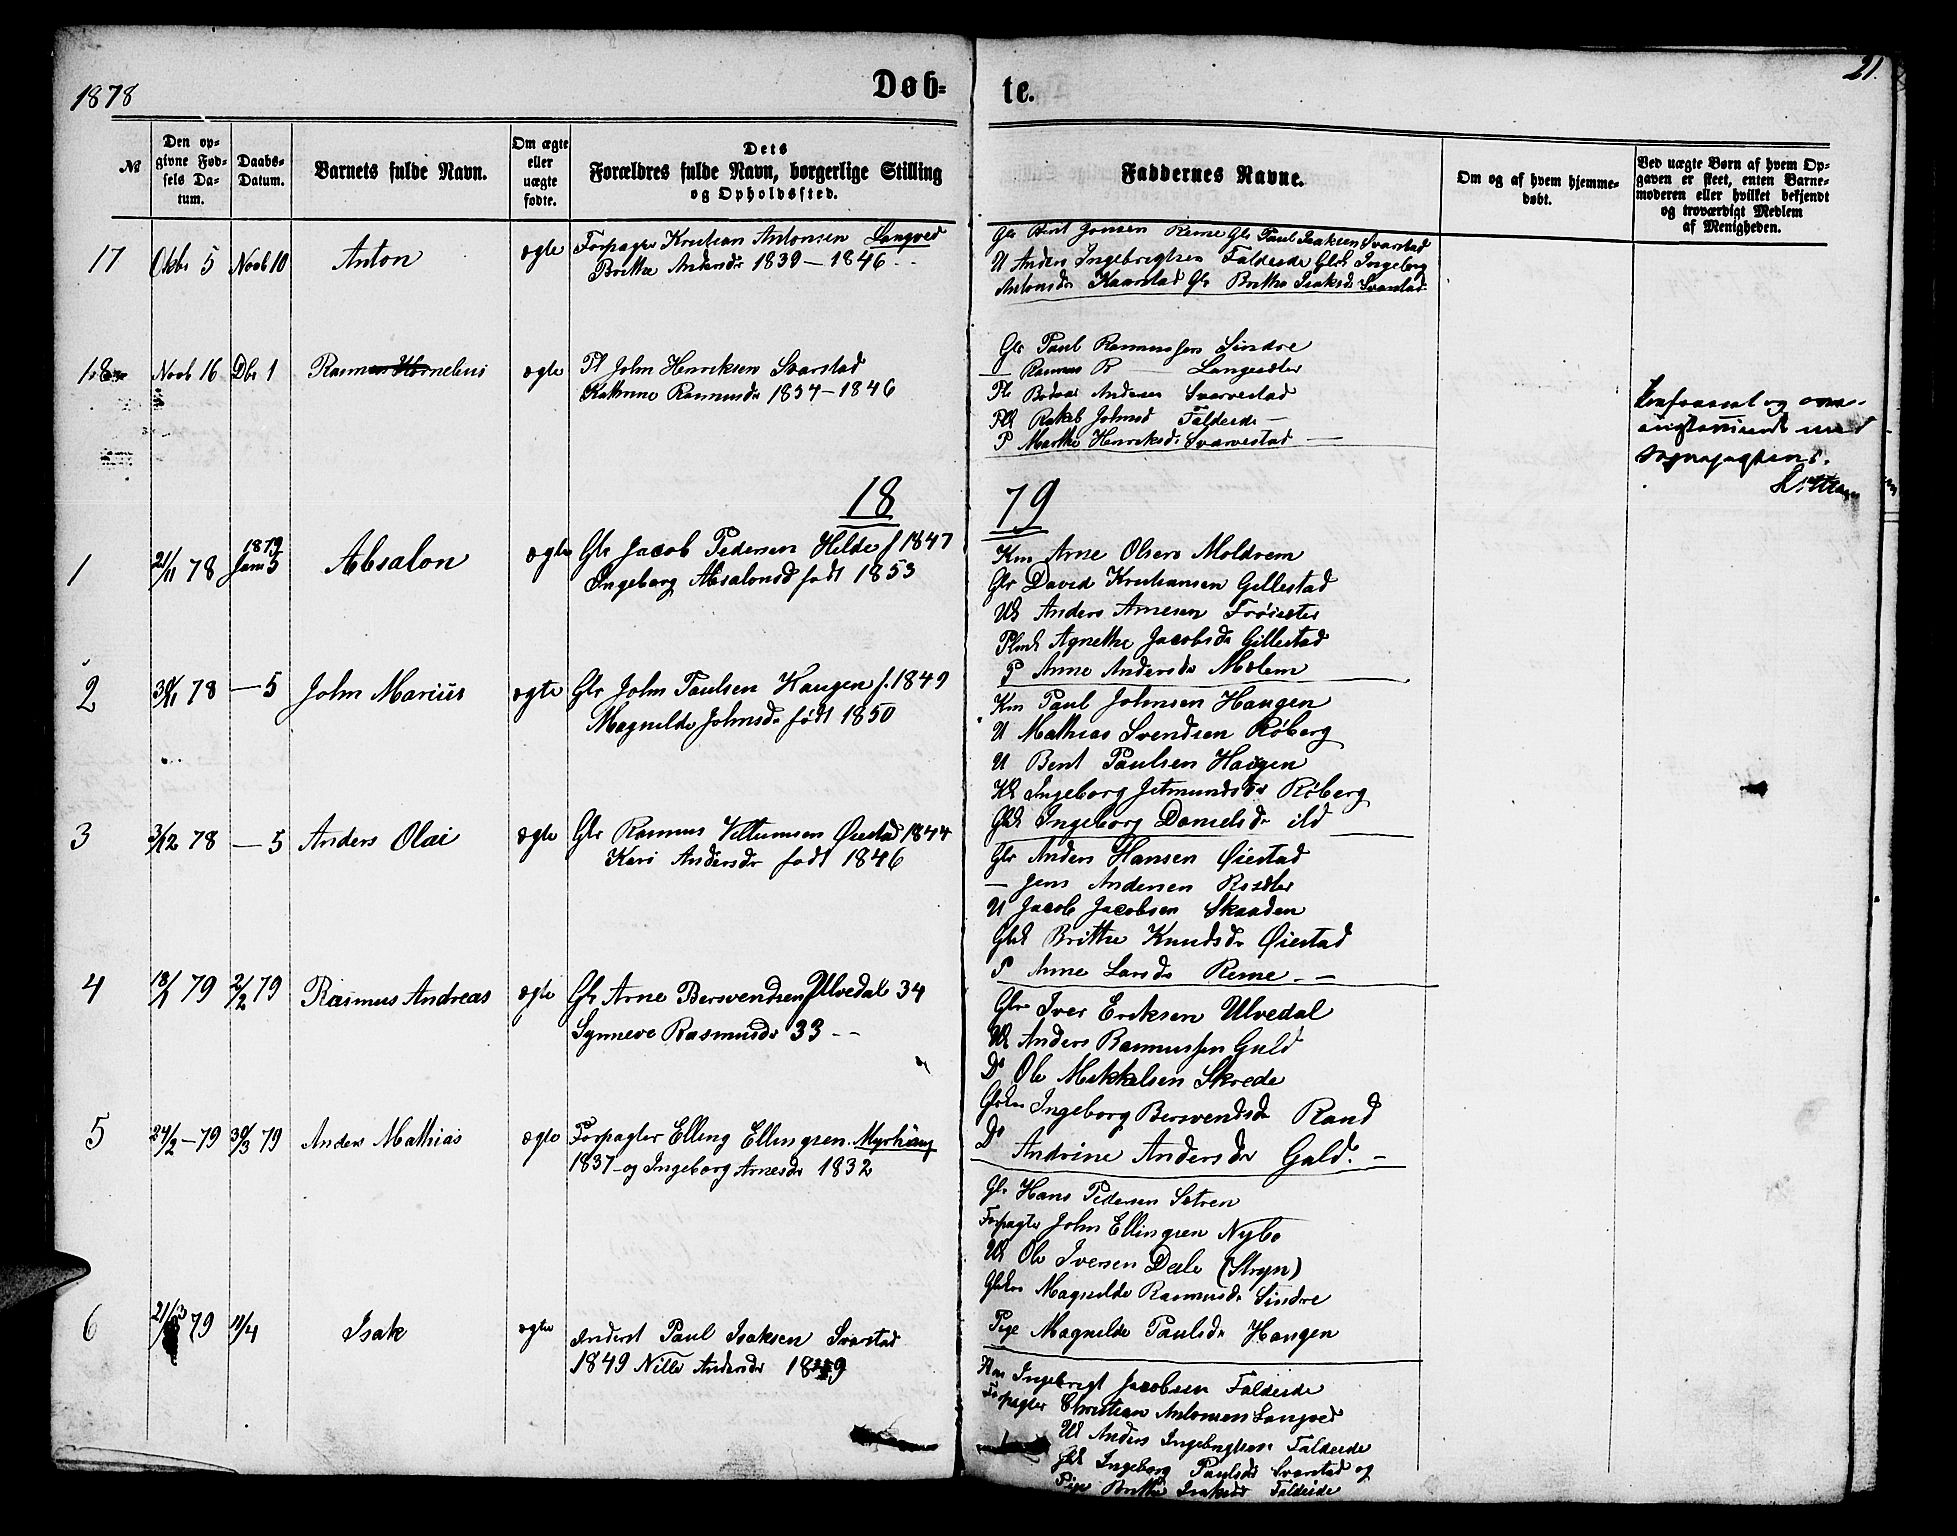 1878
Døb-
te.
21.
№
Den op-
givne Fød-
sels Da-
tum.
Daabs-
Datum.
Barnets fulde Navn.
Om ægte
eller
uægte
fødte.
Dets
Forældres fulde Navn, borgerlige Stilling
og Opholdssted.
Faddernes Navne.
Om og af hvem hjemme-
døbt.
Ved uægte Børn af hvem Op-
gaven er skeet, enten Barne-
moderen eller hvilket bekjendt
og troværdigt Medlem
af Menigheden.
17 Oktbr 5 Novb 10 Anton ægte Forpagter Kristian Antonsen Langved
Brithe Andersdr 1839 – 1846
Gbr Bent Jonsen Reme Gbr Paul Isaksen Svarstad
U Anders Ingebrigtsen Faldeide Gbk Ingeborg
Antonsdr Kaarstad Gbr Brithe Isaksdr Svarstad
18 Novb 16 Dbr 1 Rasmus Kornelius ægte Pl John Henriksen Svarstad
Kathrine Rasmusdr 1837 – 1846
Gbr Paul Rasmussen Sindre
– Rasmus R Langesæter
Pl Andersen Svarvestad
Rakel Johnsd Faldeide –
P Marthe Henriksdr Svarvestad –
Konfereret og overensstemmende med
18
79
1 21/11 78 1879 Janr 5 Absalon ægte Gbr Jacob Pedersen Hilde f 1847
Ingeborg Absalonsd født 1853
Km Arne Olsen Moldrem
Gbr David Kristiansen Gillestad
Uk Anders Arnesen Frøiseter
Agnethe Jacobsdr Gillestad
P Anne Andersdr Molem
2 30/11 78 – 5 John Marius ægte Gbr John Paulsen Haugen f. 1849
Magnilde Johnsdr født 1850
Km Paul Johnsen Haugen
U Mathias Svendsen Røberg
U Bent Paulsen Haugen
Kk Ingeborg Jetmundsdr Røberg
Gbk Ingeborg Danielsdr ild
3 3/12 78 – 5 Anders Olai ægte Gbr Rasmus Villumsen Øiestad 1844
Kari Andersdr født 1846
Gbr Anders Hansen Øiestad
– Jens Andersen Resæter
U Jacob Jacobsen Skaaden
Gbk Brithe Knudsdr Øiestad
P Anne Larsdr Reme – –
4 18/1 79 2/2 79 Rasmus Andreas ægte Gbr Arne Bersvendsen Ulvedal 34
Synneve Rasmusdr 33 – –
Gbr Iver Eriksen Ulvedal
Uk Anders Rasmussen Guld
Do Ole Mikkelsen Skrede
Ingeborg Bersvendsdr Rand
Do Andrine Andersdr Guld. –
5 24/2 – 79 30/3 79 Anders Mathias ægte Forpagter Elling Ellingsen Myrhaug
1837 – og Ingeborg Arnesdr 1832
Gbr Hans Pedersen Sætren
Forpagter John Ellingsen Nybø
Uk Ole Iversen Dale (Stryn)
Magnilde Rasmusdr Sindre
Pige Magnilde Paulsdr Haugen
6 21/3 79 11/4 Isak ægte Inderst Paul Isaksen Svarstad
1849 Nille Andersdr
Ingebrigt Jacobsen Faldeide
Forpagter Christian Antonsen Langved
Uk Anders Ingebrigtsen Faldeide
Gbk Ingeborg Paulsdr Svarstad og
Pige Brithe Isaksdr Faldeide